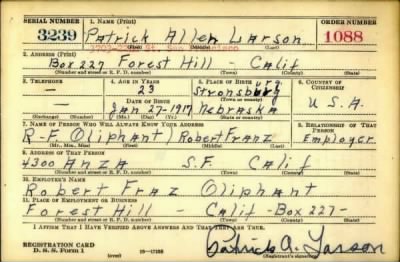 SERIAL NUMBER 1. Name (Print) ORDER NUMBER
3239 Patrick Allen Larson 1088
(First) (Middle) (Last)
2. Address (Print)
Box 227 Forest Hill - Calif
(Number and street or R. F. D. number) (Town) (County) (State)
3. Telephone 4. Age in Years 5. Place of Birth 6. Country of Citizenship
— 23 Stromsburg
Date of Birth (Town or county)
Jan 27-1917 Nebraska U.S.A.
(Exchange) (No.) (Mo.) (Day) (Yr.) (State or country)
7. Name of Person Who Will Always Know Your Address 8. Relationship of That Person
R-F Oliphant) Robert Franz Employer
(Mr., Mrs., Miss) (First) (Middle) (Last)
9. Address of That Person
4300 Anza S.F. Calif
(Number and street or R. F. D. number) (Town) (County) (State)
10. Employer's Name
Robert Fraz Oliphant
11. Place of Employment or Business
Forest Hill - Calif - Box 227 -
(Number and street or R. F. D. number) (Town) (County) (State)
I Affirm That I Have Verified Above Answers and That They Are True.
REGISTRATION CARD
D. S. S. Form 1 16—17105 Patrick A. Larson
(Registrant's signature)